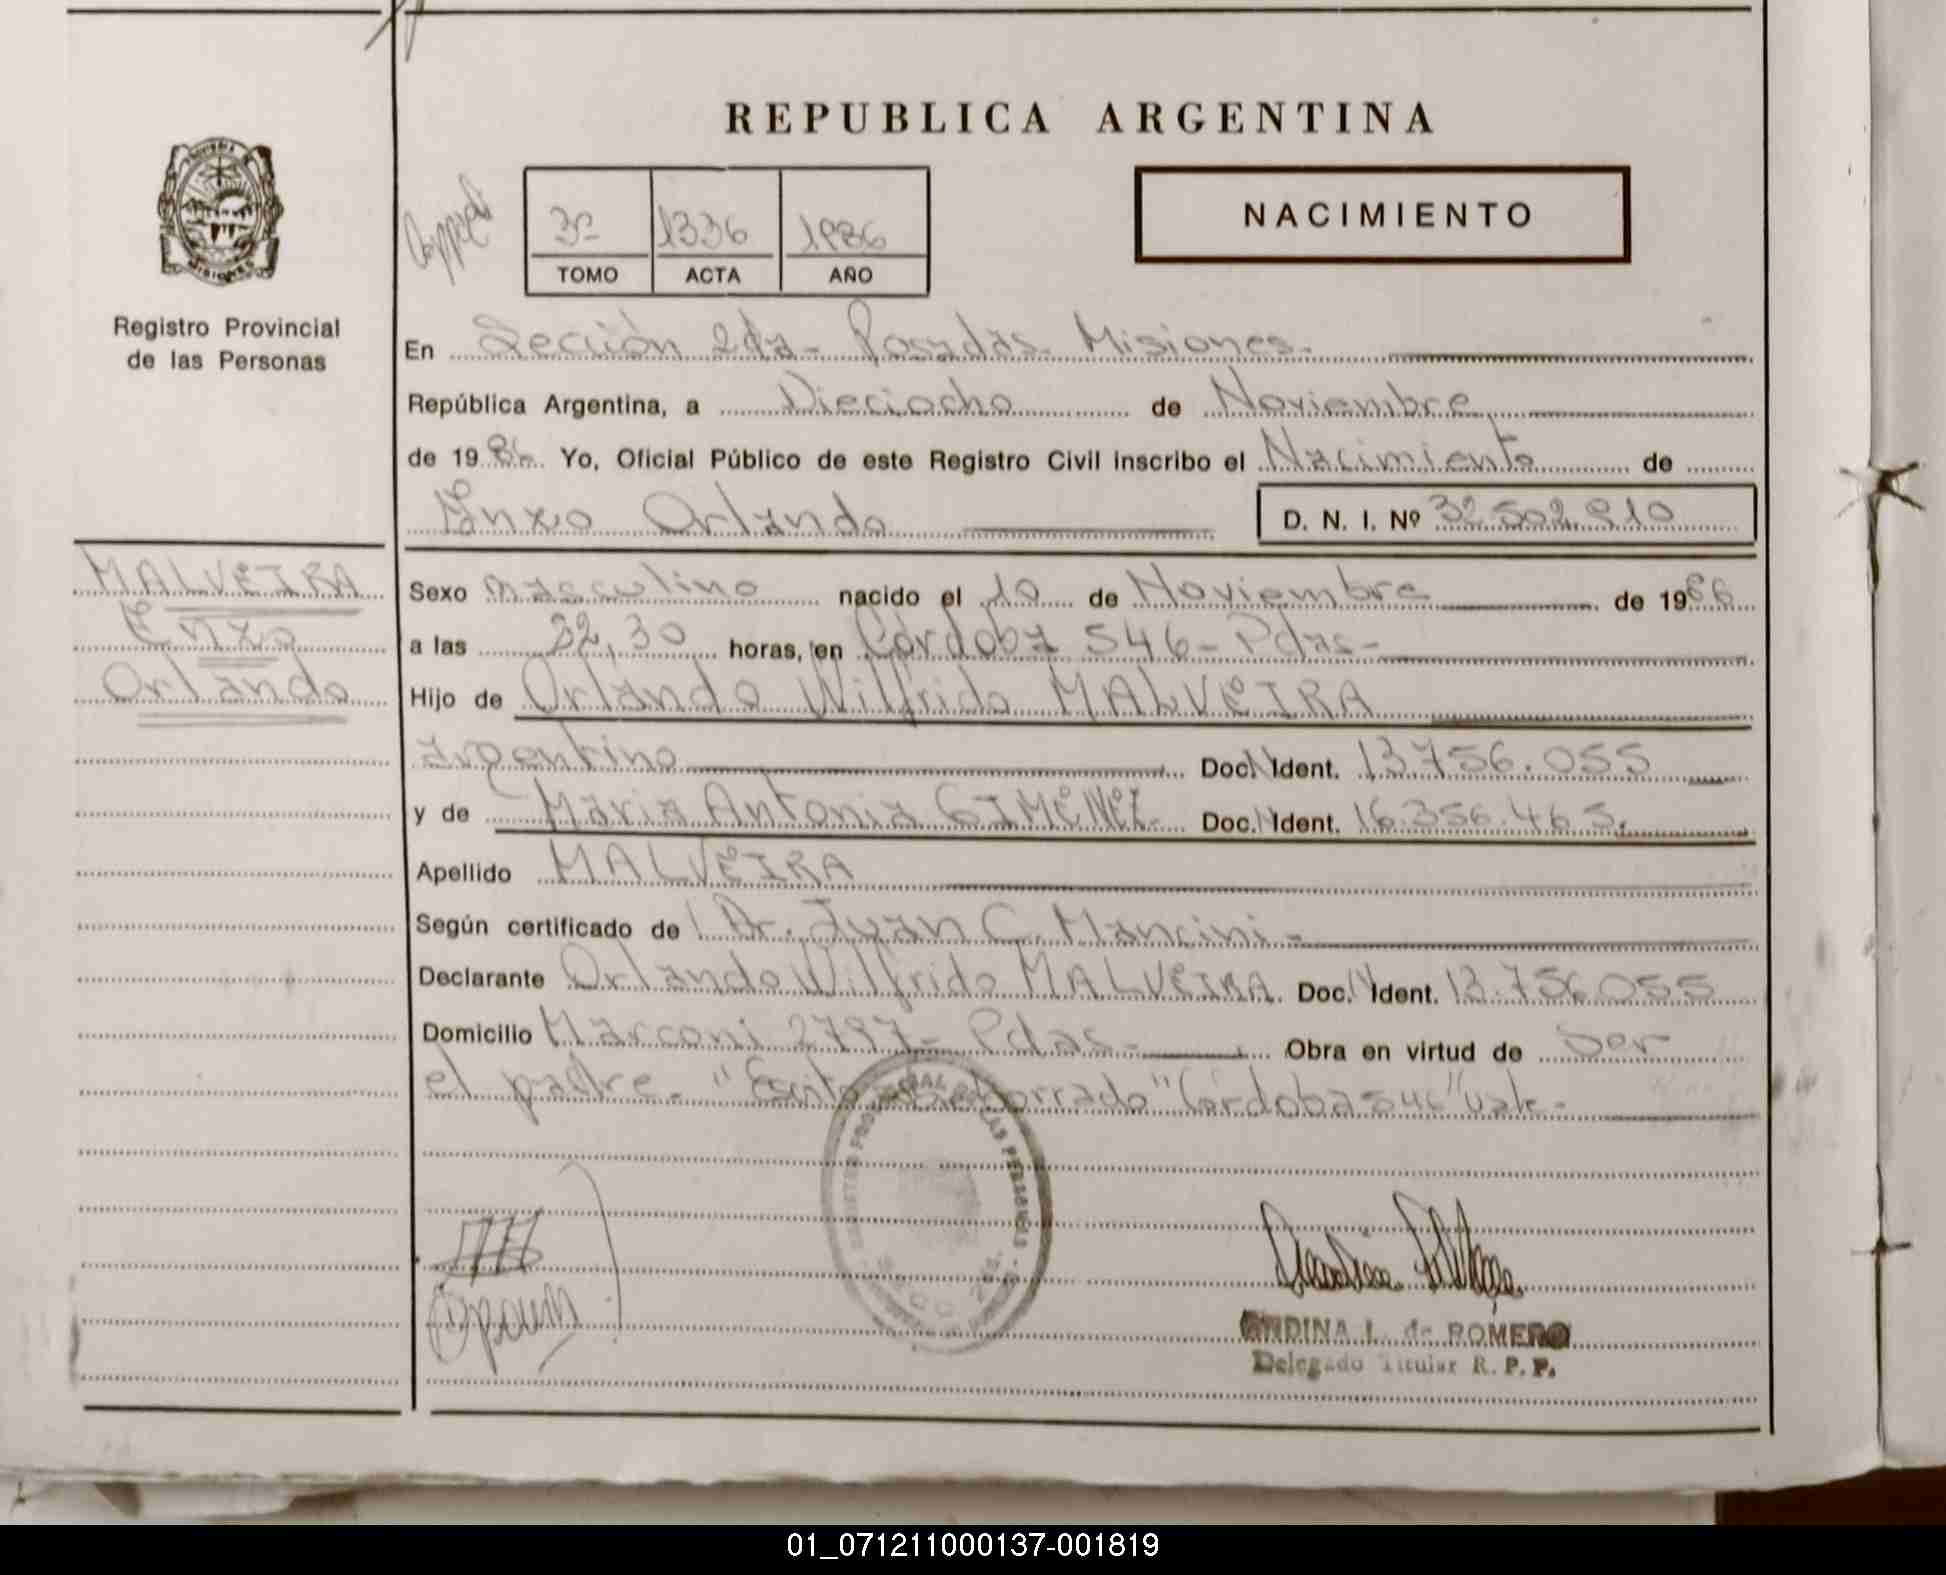 REPUBLICA ARGENTINA
NACIMIENTO
3º 1336 1986
TOMO ACTA AÑO
Registro Provincial
de las Personas
MALVEIRA
Enzo
Orlando
En Sección 2da - Posadas - Misiones -
República Argentina, a Dieciocho de Noviembre
de 1986 Yo, Oficial Público de este Registro Civil inscribo el Nacimiento de
Enzo Orlando D. N. I. Nº 32.502.910
Sexo masculino nacido el 10 de Noviembre de 1986
a las 22,30 horas, en Córdoba 546 - Pdas -
Hijo de Orlando Wilfrido MALVEIRA
argentino Doc. Ident. 13.756.055
y de Maria Antonia GIMENEZ Doc. Ident. 16.356.465.
Apellido MALVEIRA
Según certificado de Dr. Juan C. Mancini -
Declarante Orlando Wilfrido MALVEIRA Doc. Ident. 13.756.055
Domicilio Marconi 2797 - Pdas - Obra en virtud de Ser
el padre - "Escrito sobreborrado" "Córdoba 546" Vale -
ANDINA L. de ROMERO
Delegado Titular R. P. P.
01_071211000137-001819